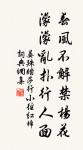 春風不解禁楊花
濛濛亂扑行人面
晏殊踏莎行小徑紅稀
詞典網集